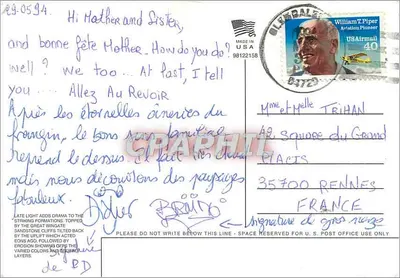 29.05.94.
Hi Mother and Sister,
and bonne fête Mother. How do you do?
well? We too... At last, I tell
you .... Allez Au Revoir
Après les éternelles âneries du
frangin, le bons sens familial
reprend le dessus et fait
mais nous découvrons des paysages
fabuleux.
Didier
BRUNO
signature de gros nazes
signature
de BD
LATE LIGHT ADDS DRAMA TO THE
STRIKING FORMATIONS TOPPED
BY THE GREAT WINGATE
SANDSTONE CLIFFS TILTED BACK
BY THE UPLIFT WHICH ACTED
EONS AGO. FOLLOWED BY
EROSION SHOWING
VARIED COLORS AND
LAYERS.
MADE IN
USA
98122158
GLENDALE
84729
William T. Piper
Aviation Pioneer
USAirmail
40
Mme et Melle TRIHAN
42, Square du Grand
PLACIS
35700 RENNES
FRANCE
DO NOT WRITE BELOW THIS LINE - SPACE RESERVED FOR U.S. POST OFFICE USE ONLY
CPAPHIL